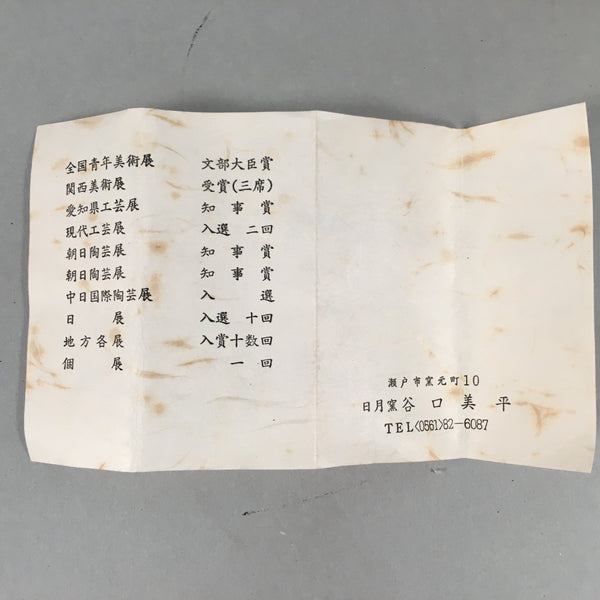 全国青年美術展 文部大臣賞
関西美術展 受賞(三席)
愛知県工芸展 知事賞
現代工芸展 入選二回
朝日陶芸展 知事賞
朝日陶芸展 知事賞
中日国際陶芸展 入選
日展 入選十回
地方各展 入賞十数回
個展 一回
瀬戸市窯元町10
日月窯 谷口美平
TEL<0561>82-6087